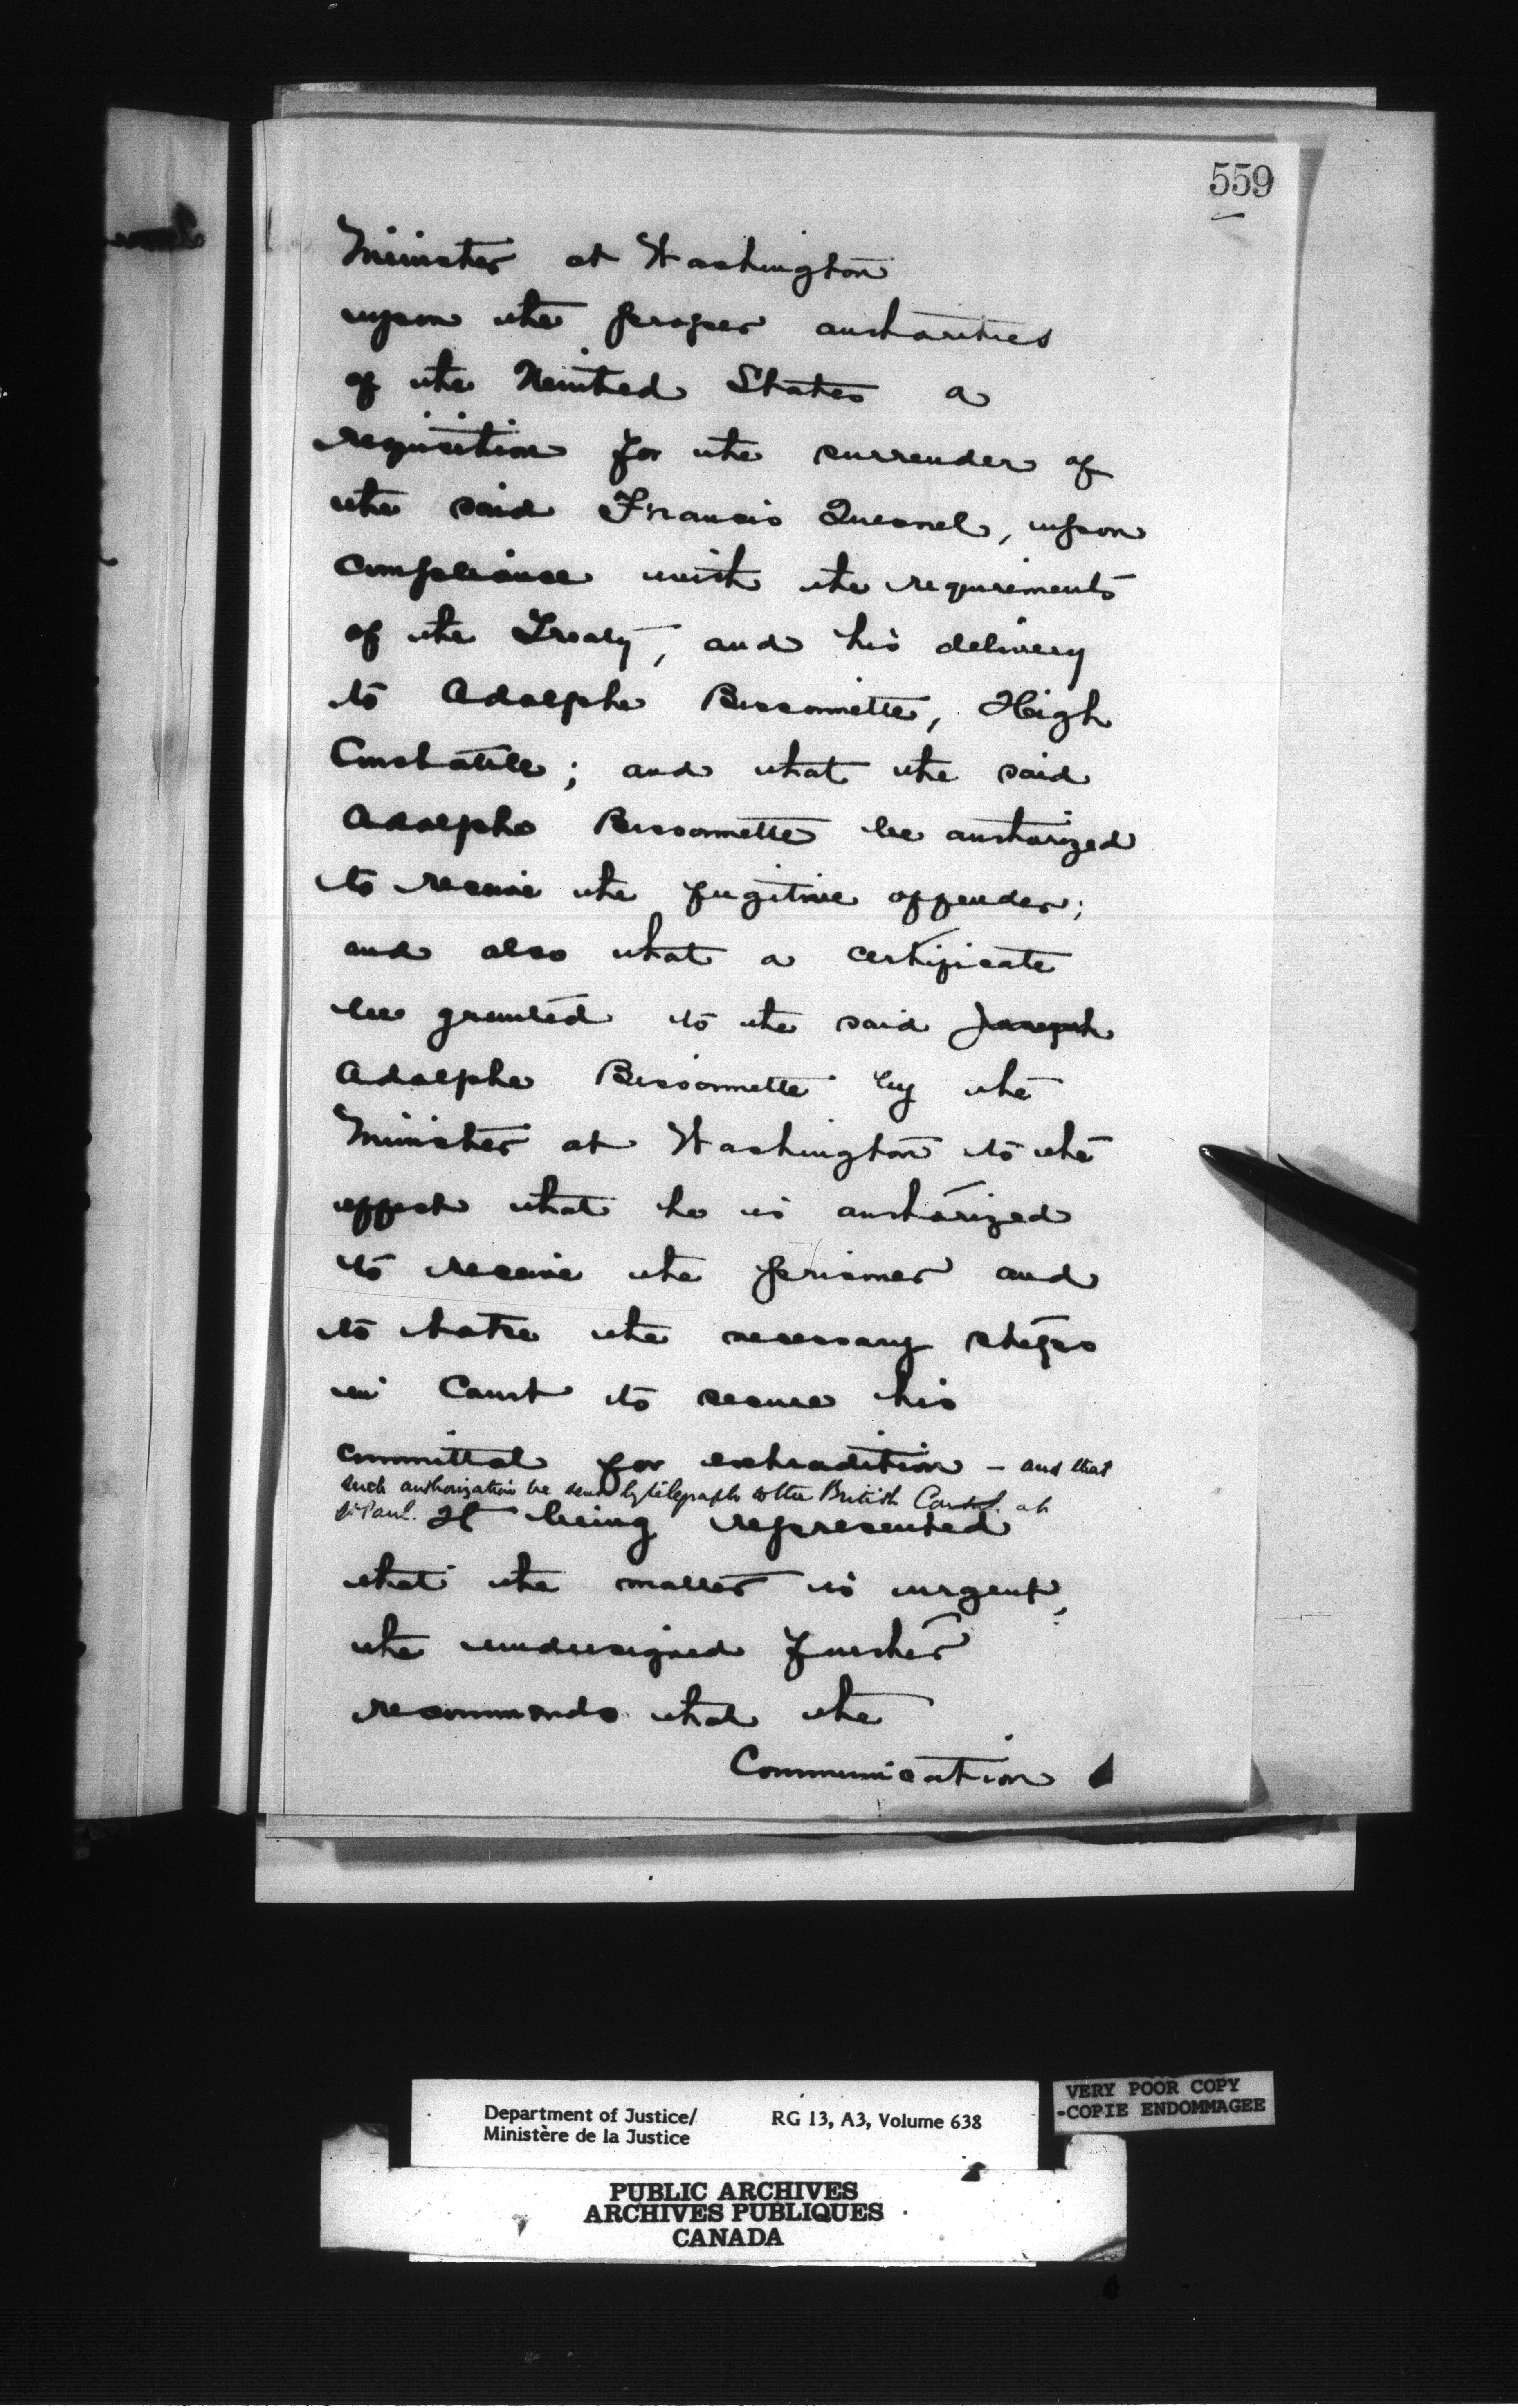 559
Minister at Washington
upon the proper authorities
of the United States a
requisition for the surrender of
the said Francis Quesnel, upon
compliance with the requirements
of the Treaty, and his delivery
to Adolphe Bissonnette, High
Constable; and that the said
Adolphe Bissonnette be authorized
to receive the fugitive offender;
and also that a certificate
be granted to the said Joseph
Adolphe Bissonnette by the
Minister at Washington to the
effect that he is authorized
to receive the prisoner and
to take the necessary steps
in Court to secure his
committal for extradition - and that
such authorization be sent by telegraph to the British Consul at
St Paul. It being represented
that the matter is urgent,
the undersigned further
recommends that the
Communication
Department of Justice/ RG 13, A3, Volume 638
Ministère de la Justice
VERY POOR COPY
-COPIE ENDOMMAGEE
PUBLIC ARCHIVES
ARCHIVES PUBLIQUES
CANADA